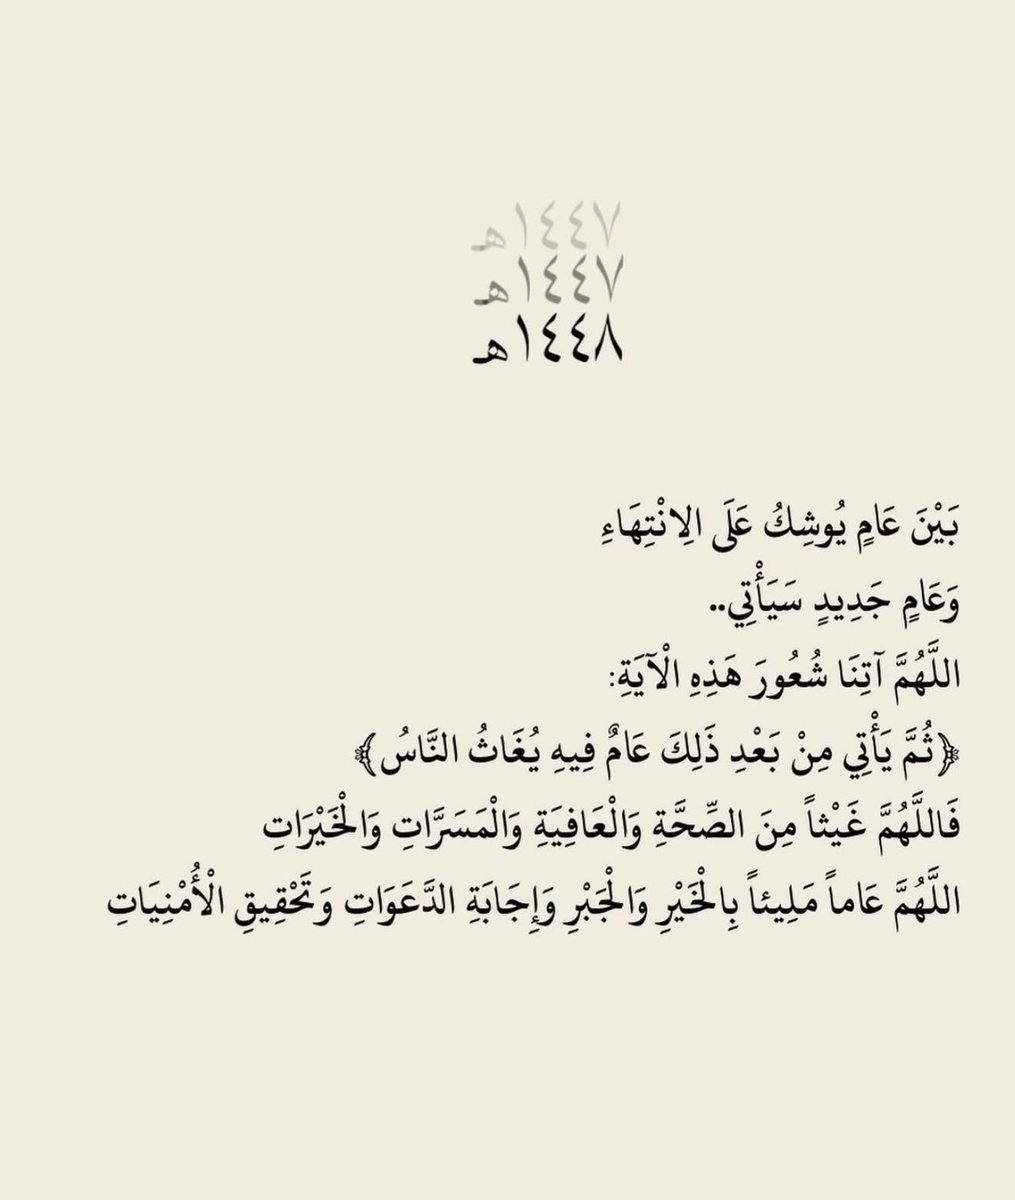 ١٤٤٧هـ
١٤٤٧هـ
١٤٤٨هـ
بَيْنَ عَامٍ يُوشِكُ عَلَى الِانْتِهَاءِ
وَعَامٍ جَدِيدٍ سَيَأْتِي..
اللَّهُمَّ آتِنَا شُعُورَ هَذِهِ الْآيَةِ:
﴿ثُمَّ يَأْتِي مِنْ بَعْدِ ذَلِكَ عَامٌ فِيهِ يُغَاثُ النَّاسُ﴾
فَاللَّهُمَّ غَيْثاً مِنَ الصِّحَّةِ وَالْعَافِيَةِ وَالْمَسَرَّاتِ وَالْخَيْرَاتِ
اللَّهُمَّ عَاماً مَلِيئاً بِالْخَيْرِ وَالْجَبْرِ وَإِجَابَةِ الدَّعَوَاتِ وَتَحْقِيقِ الْأُمْنِيَاتِ